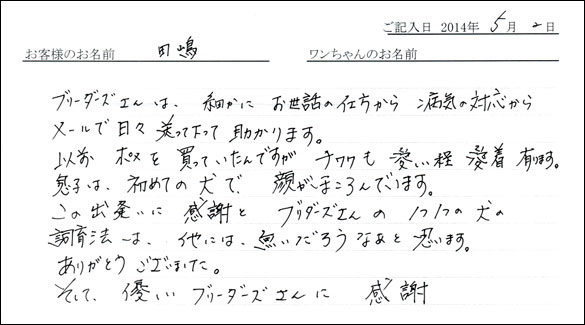 ご記入日 2014年 5月 2日
お客様のお名前 田嶋 ワンちゃんのお名前
ブリーダーズさんは、細かに お世話の仕方から 病気の対応から
メールで日々 送って下って 助かります。
以前 ポメを買っていたんですが チワワも 愛い程 愛着 有ります。
息子は、初めての犬で、顔がほころんでいます。
この出逢いに 感謝と ブリダーズさんの 1つ1つの犬の
飼育法は、他には、無いだろうなあと 思います。
ありがとうございました。
そして、優しいブリーダーズさんに 感謝